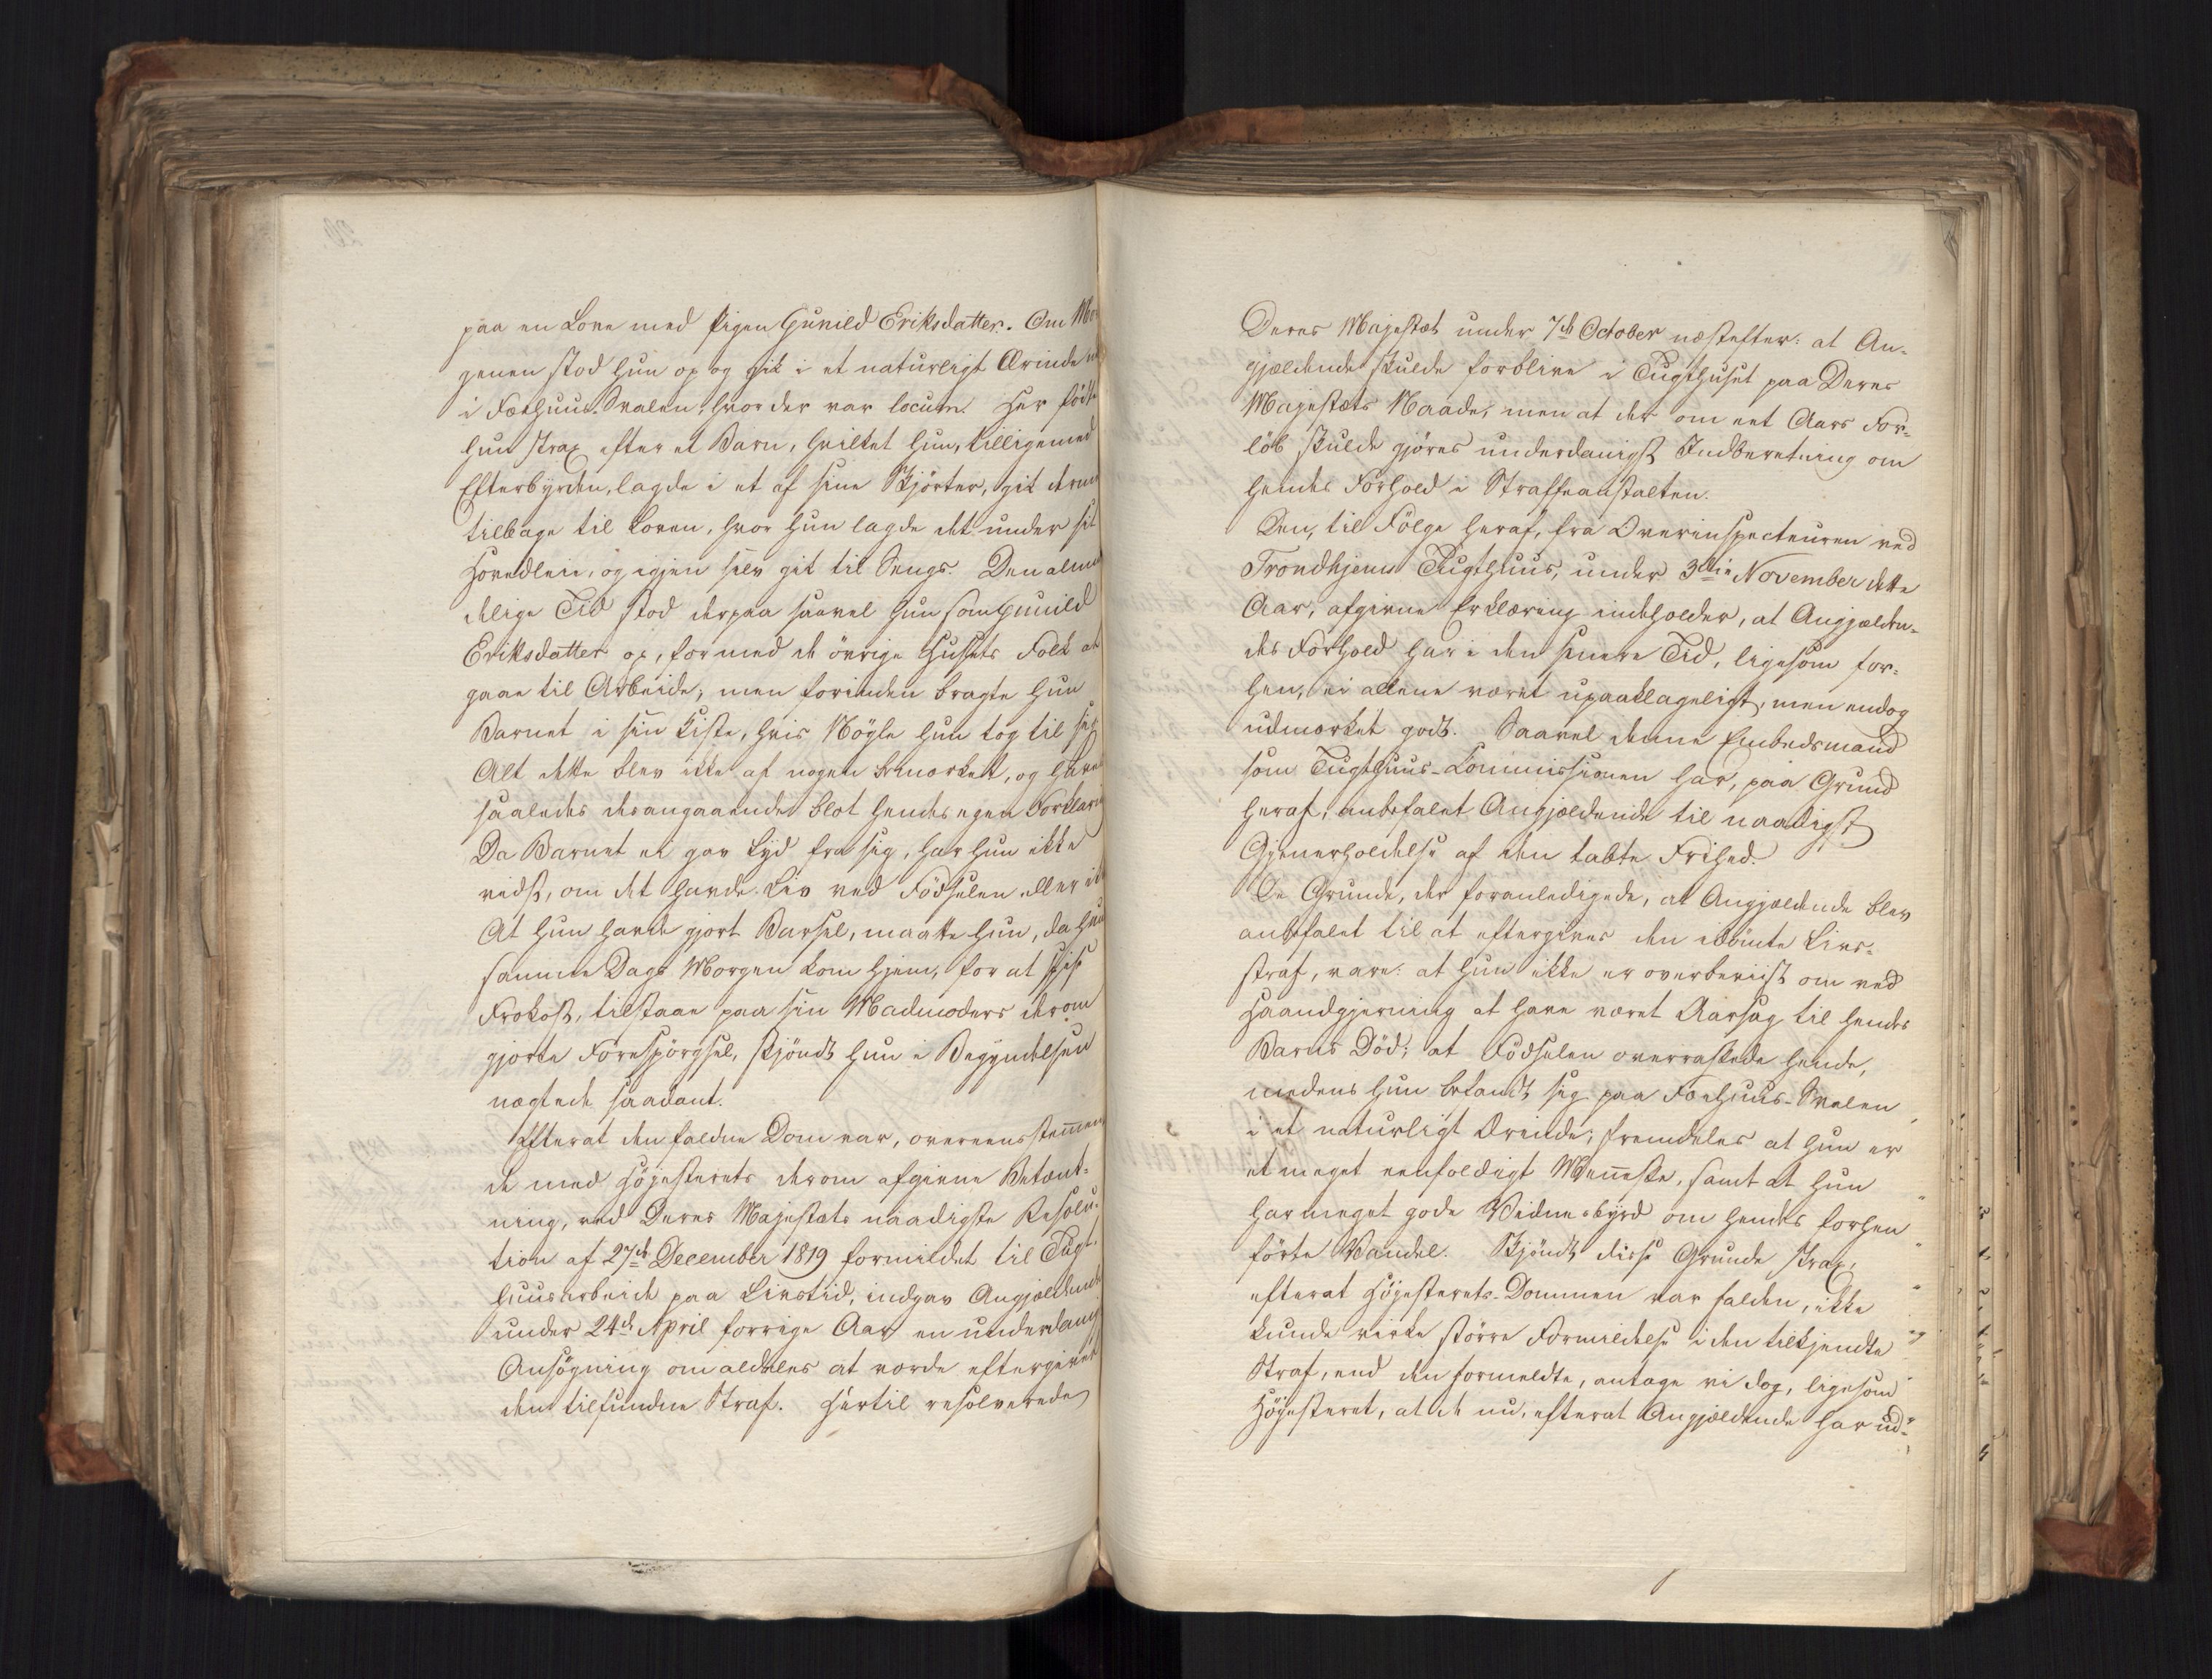 paa en Love med Pigen Gunild Eriksdatter. Om Mor
genen stod hun op og gik i et naturligt Ærinde
i Fæehuus-Svalen, hvor der var locum. Her fødte
hun strax efter et Barn, hvilket hun, tilligemed
Efterbyrden, lagde i et af sine Skjörter, gik dermed
tilbage til Loven, hvor hun lagde det under sit
Hovedleie, og igjen selv gik til Sengs. Den almin
delige Tid stod derpaa saavel hun som Gunild
Eriksdatter op, for med de övrige Husets Folk at
gaae til Arbeide; men forinden bragte hun
Barnet i sin Kiste, hvis Nögle hun tog til sig
Alt dette blev ikke af nogen bemærket, og haves
saaledes desangaaende blot hendes egen Forklaring
Da Barnet ei gav Lyd fra sig, har hun ikke
vidst, om det havde Liv ved Födselen eller ikke
At hun havde gjort Barsel, maatte hun, da hun
samme Dags Morgen kom hjem, for at spise
Frokost, tilstaae paa sin Madmoders derom
gjorte Forespörgsel, skjöndt hun i Begyndelsen
nægtede saadant.
Efterat den faldne Dom var, overeensstemmen
de med Höjesterets derom afgivne Betænk-
ning, ved Deres Majestæts naadigste Resolu-
tion af 27de December 1819 formildet til Tugt-
huusarbeide paa Livstid, indgav Angjældende
under 24de April forrige Aar en underdanig
Ansögning om aldeles at vorde eftergivet
den tilfundne Straf. Hertil resolverede
Deres Majestæt under 7de October næstefter: at An-
gjældende skulde forblive i Tugthuset paa Deres
Majestæts Naade, men at der om eet Aars For-
löb skulde gjöres underdanigst Indberetning om
hendes Forhold i Straffeanstalten.
Den, til Fölge heraf, fra Overinspecteuren ved
Trondhjems Tugthuus, under 3die November dette
Aar, afgivne Erklæring indeholder, at Angjælden-
des Forhold har i den senere Tid, ligesom for-
hen, ei allene været upaaklageligt, men endog
udmærket godt. Saavel denne Embedsmand
som Tugthuus-Commissionen har, paa Grund
heraf, anbefalet Angjældende til naadigst
Gjenerholdelse af den tabte Frihed.
De Grunde, der foranledigede, at Angjældende blev
anbefalet til at eftergives den idömte Livs-
straf, vare: at hun ikke er overbeviist om ved
Haandgjerning at have været Aarsag til hendes
Barns Död; at Födselen overraskede hende,
medens hun befandt sig paa Fæehuus-Svalen
i et naturligt Ærinde; fremdeles at hun er
et meget eenfoldigt Menneske, samt at hun
har meget gode Vidnesbyrd om hendes forhen
förte Vandel. Skjöndt disse Grunde strax,
efterat Höjesterets-Dommen var falden, ikke
kunde virke större Formildelse i den tilkjendte
Straf, end den formeldte, antage vi dog, ligesom
Höjesteret, at de nu, efterat Angjældende har ud-